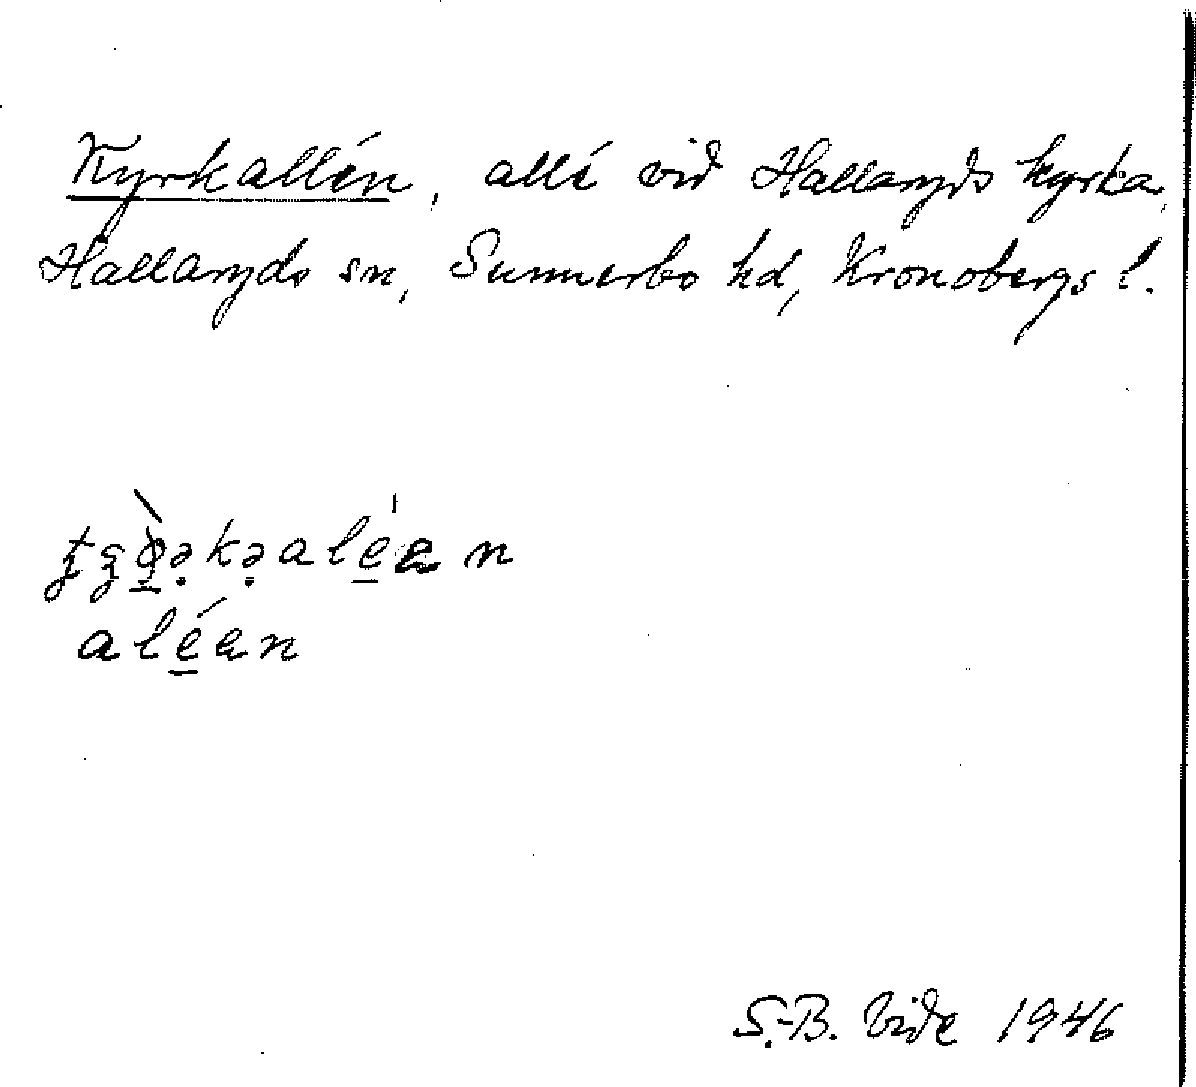 Kyrkallén, allé vid Hallaryds kyrka,
Hallaryds sn, Sunnerbo hd, Kronobergs l.
aléen
S.-B. Vide 1946